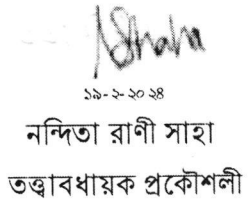 ১৯-২-২০২৪
নন্দিতা রাণী সাহা
তত্ত্বাবধায়ক প্রকৌশলী